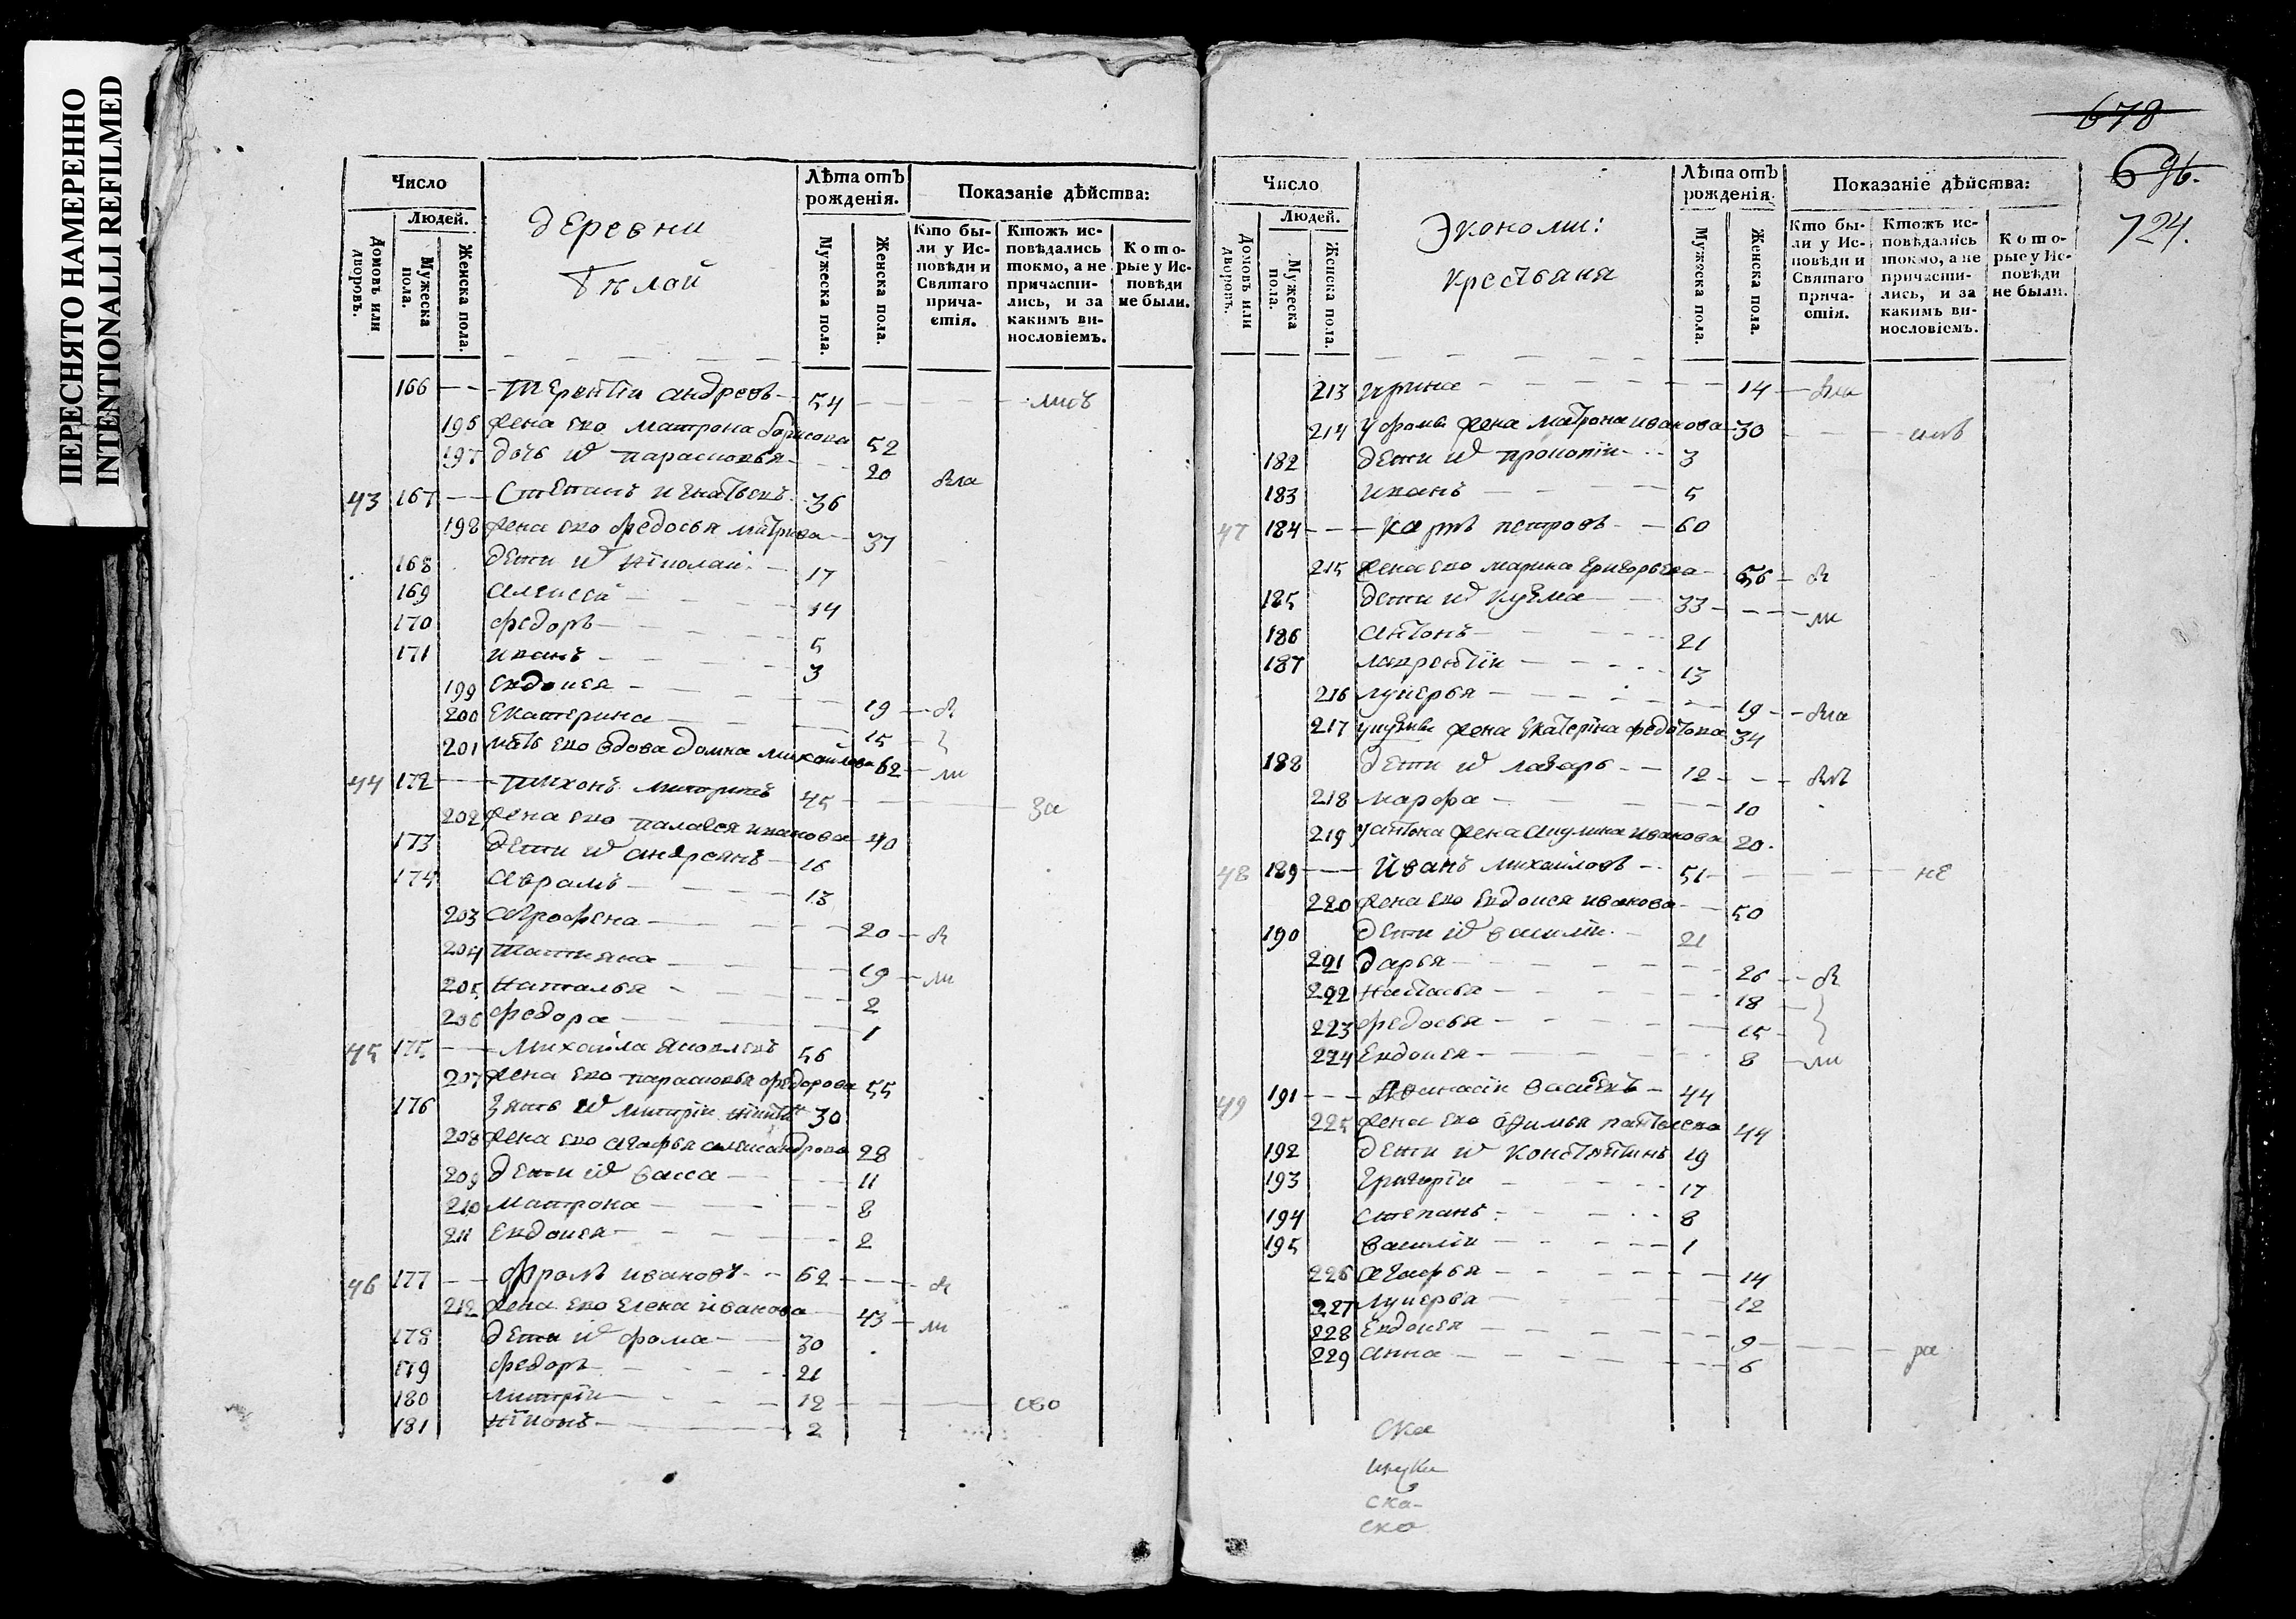 ПЕРЕСНЯТО НАМЕРЕННО
INTENTIONALLI REFILMED
Число
Людей.
Домовъ или дворовъ.
Мужеска пола.
Женска пола.
деревни
Лѣта отъ рожденія.
Мужеска пола.
Женска пола.
Показаніе дѣйства:
Кто были у Исповѣди и Святаго причастія.
Ктожъ исповѣдались токмо, а не причастились, и за какимъ винословіемъ.
Которые у Исповѣди не были.
166 — терентіи андреевъ 54
196 жена ево матрона борисова 52
197 дочь их парасковья 20
43 167 — Степанъ игнатьевъ 36
198 жена ево федосья митрева 37
168 дети их Николаи 17
169 алексеи 14
170 федоръ 5
171 иванъ 3
199 евдокея 19
200 Екатерина 15
201 мать ево вдова домна михаилова 62
44 172 — тихонъ митривъ 45
202 жена ево палагея иванова 40
173 дети их андреянъ 16
174 аврамъ 13
203 агрофена 20
204 татияна 19 ли
205 наталья 2
206 федора 1
45 175 — Михаила яковлевъ 56
207 жена ево парасковья федорова 55
176 зять их митрiи никит 30
208 жена ево агафья александрова 28
209 дети их васса 11
210 матрона 8
211 Евдокея 2
46 177 — фролъ ивановъ 62
212 жена ево Елена иванова 43 ли
178 дети их фома 30
179 федоръ 21
180 митріи 12
181 никонъ 2
678
696.
724.
Число
Людей.
Домовъ или дворовъ.
Мужеска пола.
Женска пола.
Экономи:
крестьяня
Лѣта отъ рожденія.
Мужеска пола.
Женска пола.
Показаніе дѣйства:
Кто были у Исповѣди и Святаго причастія.
Ктожъ исповѣдались токмо, а не причастились, и за какимъ винословіемъ.
Которые у Исповѣди не были.
213 ирина 14
214 у фомы жена матрона иванова 30
182 дети их прокопіи 3
183 иванъ 5
47 184 — карпъ петровъ 60
215 жена ево марина григорьева 56
185 дети их кузма 33 ли
186 антонъ 21
187 лаврентіи 13
216 лукерья 19
217 у кузмы жена Екатеріна федотова 34
188 дети их лазарь 12
218 марфа 10
219 у антона жена акулина иванова 20
48 189 — Иванъ михаиловъ 51 не
220 жена ево евдокея иванова 50
190 дети их василіи 21
221 дарья 26
222 настасья 18
223 федосья 15
224 Евдокея 8 ли
49 191 — Афанасіи васильевъ 44
225 жена ево Ефимья 44
192 дети их констянтинъ 19
193 григорiи 17
194 степанъ 8
195 василіи 1
226 агафья 14
227 лукерья 12
228 Евдокея 9
229 анна 6 ра